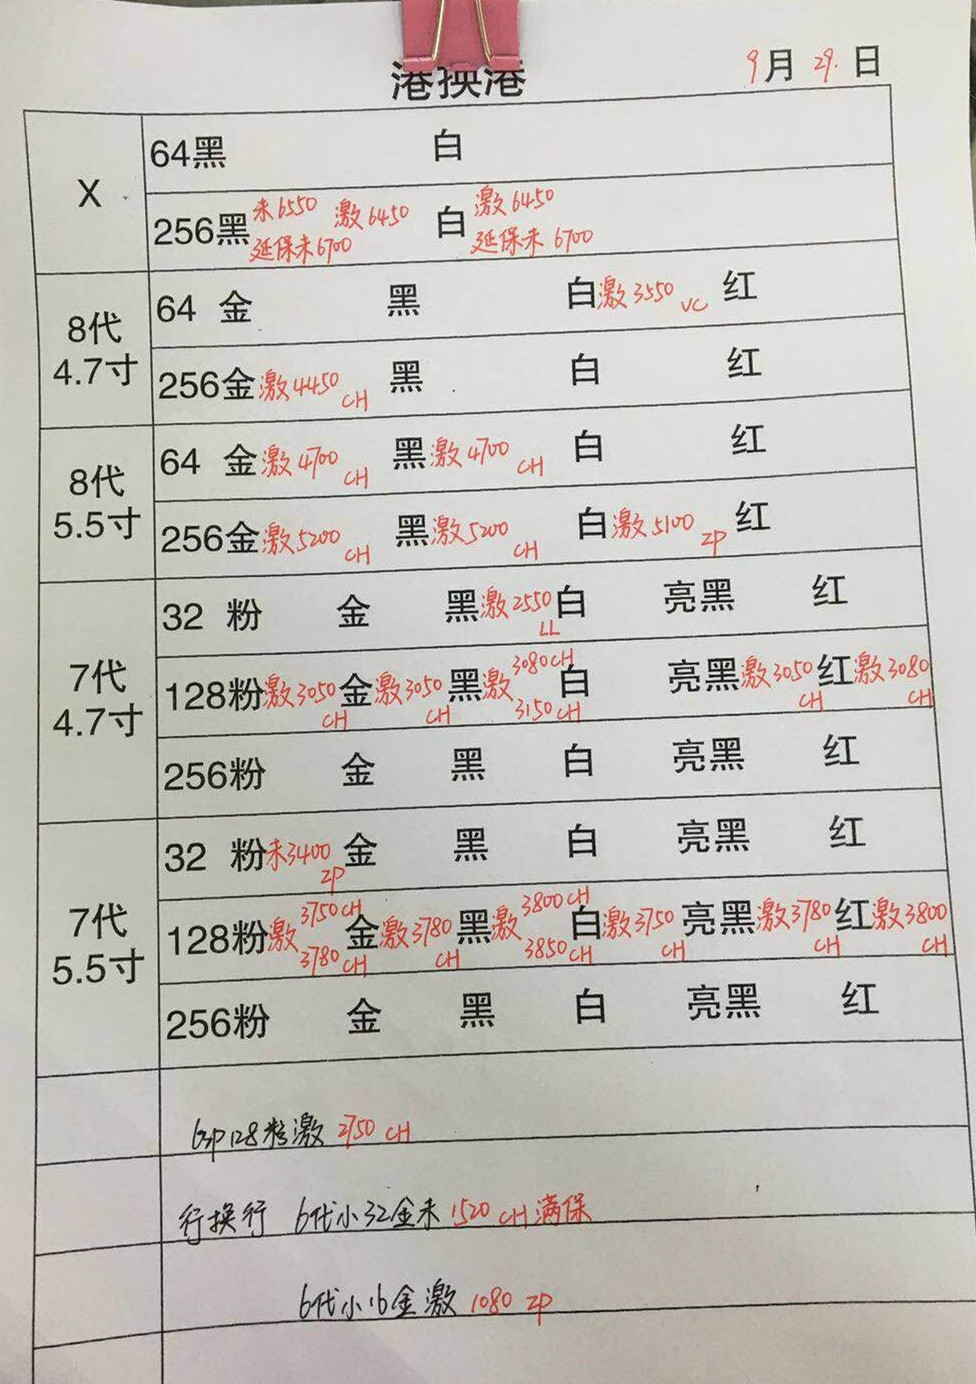 港换港
9月29.日
X
64黑 白
256黑 未6550 激6450 白 激6450
延保未6700 延保未6700
8代
4.7寸
64 金 黑 白激3550 VC 红
256金激4450 CH 黑 白 红
8代
5.5寸
64 金激4700 CH 黑激4700 CH 白 红
256金激5200 CH 黑激5200 CH 白激5100 ZP 红
7代
4.7寸
32 粉 金 黑激2550 LL 白 亮黑 红
128粉激3050 CH 金激3050 CH 黑激3080CH 3150CH 白 亮黑激3050 CH 红激3080 CH
256粉 金 黑 白 亮黑 红
7代
5.5寸
32 粉未3400 ZP 金 黑 白 亮黑 红
128粉激3750CH 3780CH 金激3780 CH 黑激3800CH 3850CH 白激3750 CH 亮黑激3780 CH 红激3800 CH
256粉 金 黑 白 亮黑 红
6sp128粉激 2750 CH
行换行 6代小32金未1520 CH满保
6代小16金激 1080 ZP